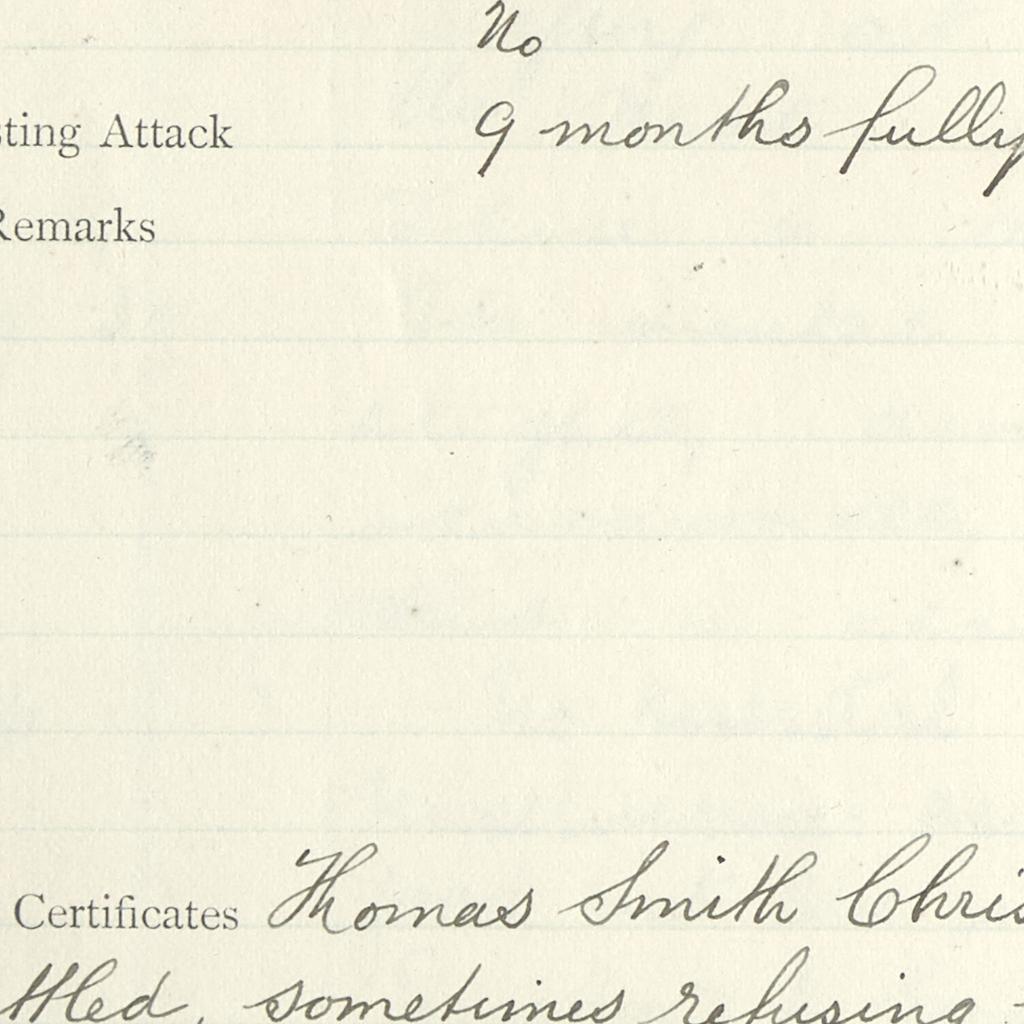 No
sting Attack 9 months fully
Remarks
Certificates Thomas Smith Chris
ttled, sometimes refusing